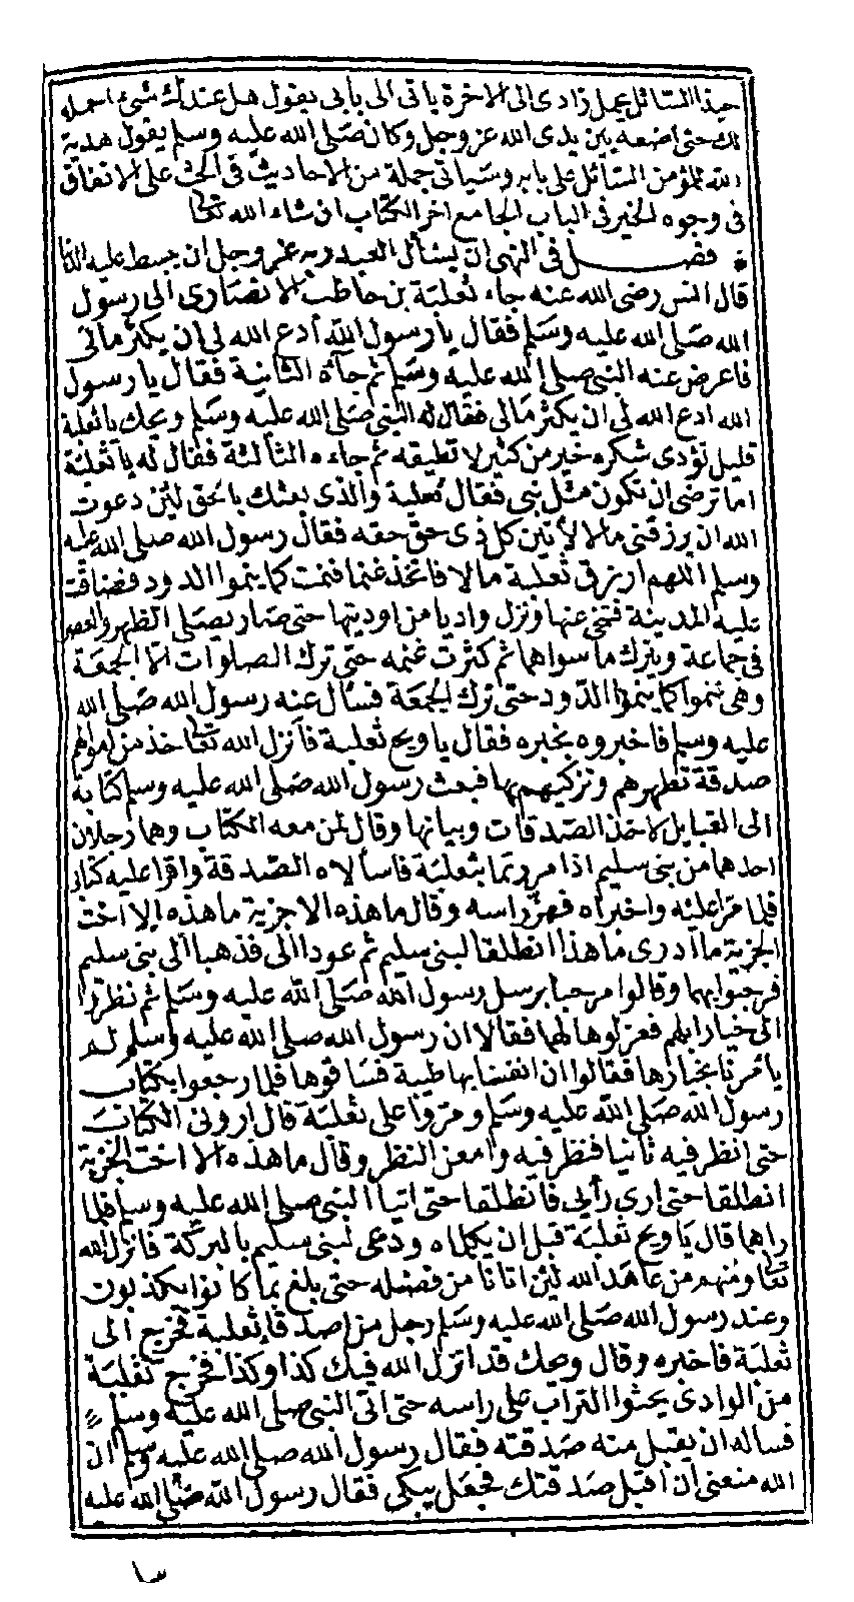 حبذا السائل يحمل زادى الى الاخرة ياتى الى بابى يقول هل عندك شئ احمله
لك حتى اضعه بين يدى الله عز وجل وكان صلى الله عليه وسلم يقول هدية
الله للمؤمن السائل على بابه وسياتى جملة من الاحاديث فى الحث على الانفاق
فى وجوه الخير فى الباب الجامع اخر الكتاب ان شاء الله تعا
فصل فى النهى ان يسأل العبد ربه عز وجل ان يبسط عليه الدنا
قال انس رضى الله عنه جاء ثعلبة بن حاطب الانصارى الى رسول
الله صلى الله عليه وسلم فقال يا رسول الله أدع الله لى ان يكثر مالى
فاعرض عنه النبى صلى الله عليه وسلم ثم جآة الثانية فقال يا رسول
الله ادع الله لى ان يكثر مالى فقال له النبى صلى الله عليه وسلم ويحك يا ثعلبة
قليل تؤدى شكره خير من كثير لا تطيقه ثم جاءه الثالثة فقال له يا ثعلبة
اما ترضى ان تكون مثل نبى فقال ثعلبة والذى بعثك بالحق لئن دعوت
الله ان يرزقنى مالا لأتين كل ذى حق حقه فقال رسول الله صلى الله عليه
وسلم اللهم ارزق ثعلبة مالا فاتخذ غنما فنمت كما ينموا الدود فضاقت
عليه المدينة فتنحى عنها ونزل واديا من اوديتها حتى صار يصلى الظهر والعصر
فى جماعة ويترك ما سواهما ثم كثرت غنمه حتى ترك الصلوات الا الجمعة
وهى تنموا كما ينموا الدود حتى ترك الجمعة فسأل عنه رسول الله صلى الله
عليه وسلم فاخبروه بخبره فقال يا ويح ثعلبة فأنزل الله تعا خذ من اموالهم
صدقة تطهرهم وتزكيهم بها فبعث رسول الله صلى الله عليه وسلم كتابة
الى القبايل لاخذ الصدقات وبيانها وقال لمن معه الكتاب وهما رجلان
احدهما من بنى سليم اذا مررتما بثعلبة فاسألاه الصدقة واقرا عليه كتابى
فلما مرا عليه واخبراه فهز راسه وقال ما هذه الا جزية ما هذه الا اخت
الجزية ما ادرى ما هذا انطلقا لبنى سليم ثم عودا الى فذهبا الى بنى سليم
فرحبوا بهما وقالوا مرحبا برسل رسول الله صلى الله عليه وسلم ثم نظروا
الى خيار ابلهم فعزلوها لهما فقالا ان رسول الله صلى الله عليه وسلم لم
يأمرنا بخيارها فقالوا ان انفسنا بها طيبة فساقوها فلما رجعوا بكتاب
رسول الله صلى الله عليه وسلم ومروا على ثعلبة قال ارونى الكتاب
حتى انظر فيه ثانيا فنظر فيه وامعن النظر وقال ما هذه الا اخت الجزية
انطلقا حتى ارى رأيى فانطلقا حتى اتيا النبى صلى الله عليه وسلم فلما
راهما قال يا ويح ثعلبة قبل ان يكلماه ودعى لبنى سليم بالبركة فانزل الله
تعا ومنهم من عاهد الله لئن اتانا من فضله حتى بلغ بما كانوا يكذبون
وعند رسول الله صلى الله عليه وسلم رجل من اصدقاء ثعلبة فخرج الى
ثعلبة فاخبره وقال ويحك قد انزل الله فيك كذا وكذا فخرج ثعلبة
من الوادى يحثوا التراب على راسه حتى اتى النبى صلى الله عليه وسلم
فساله ان يقبل منه صدقته فقال رسول الله صلى الله عليه وسلم ان
الله منعنى أن اقبل صدقتك فجعل يبكى فقال رسول الله صلى الله عليه